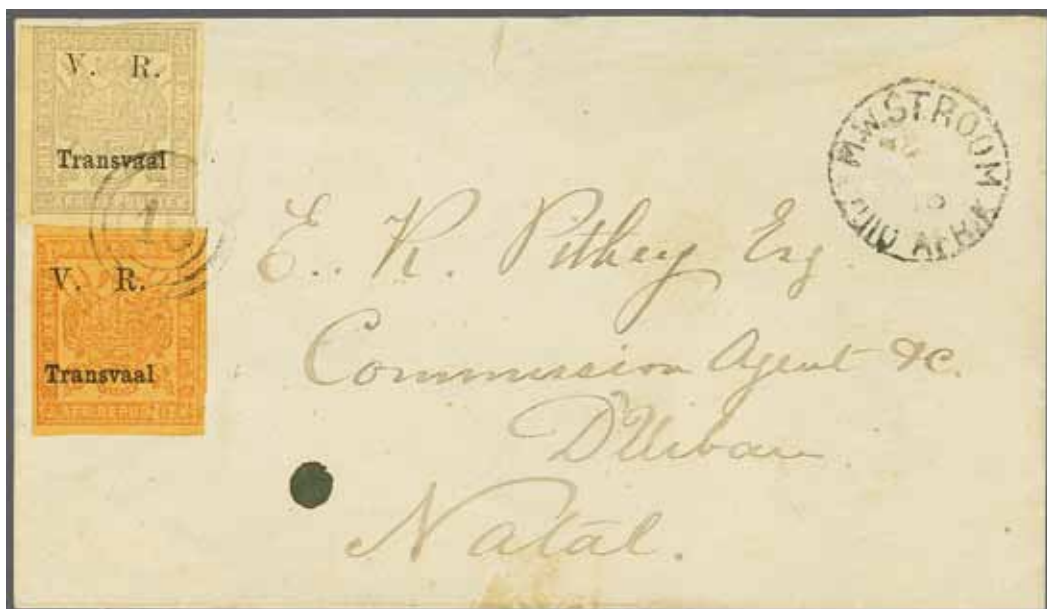 V. R.
Transvaal
1
V. R.
Transvaal
M.W.STROOM
ZUID AFRIKA
E. K. Pithey Esq.
Commission Agent &c.
D'Urban
Natal.